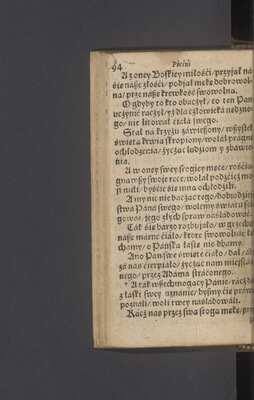 94 Pieśni
A z oney Boskiey miłości/ przyjął na
się nasze złości/ podjął mękę dobrowol-
ną/ prze nasze krewkość swowolną.
O gdyby to kto obaczył/ co ten Pan
uczynić raczył/ iż dla człowieka nędzne-
go/ nie litował ciała swego.
Stał na krzyżu zawieszony/ wszystek
świętą krwią skropiony/ wołał pragnę
ochłodzenia/ życząc ludziom zbawie-
nia.
A w oney swey srogiey męce/ rością-
gnąwszy swoje ręce/ wołał
byście się inną ochłodzili.
A my nic nie bacząc tego/ dobrodziey-
stwa Pana swego/ wolemy świata
jego złych spraw naśladować.
Tak się bárzo rozbujało/ w grzechu
nasze marne ciało/ które swowolnie
chamy/ o Pańską łaskę nie dbamy.
Ano Pańskie święte ciało/ dał
za nas cierpiało/ życząc nam mieysca
nego/ przez Adama straconego.
A tak wszechmogący Panie/ racz
z łaski swey uznanie/ byśmy cię prawie
poznali/ woli twey naśladowali.
Racz nas przez swą srogą mękę/